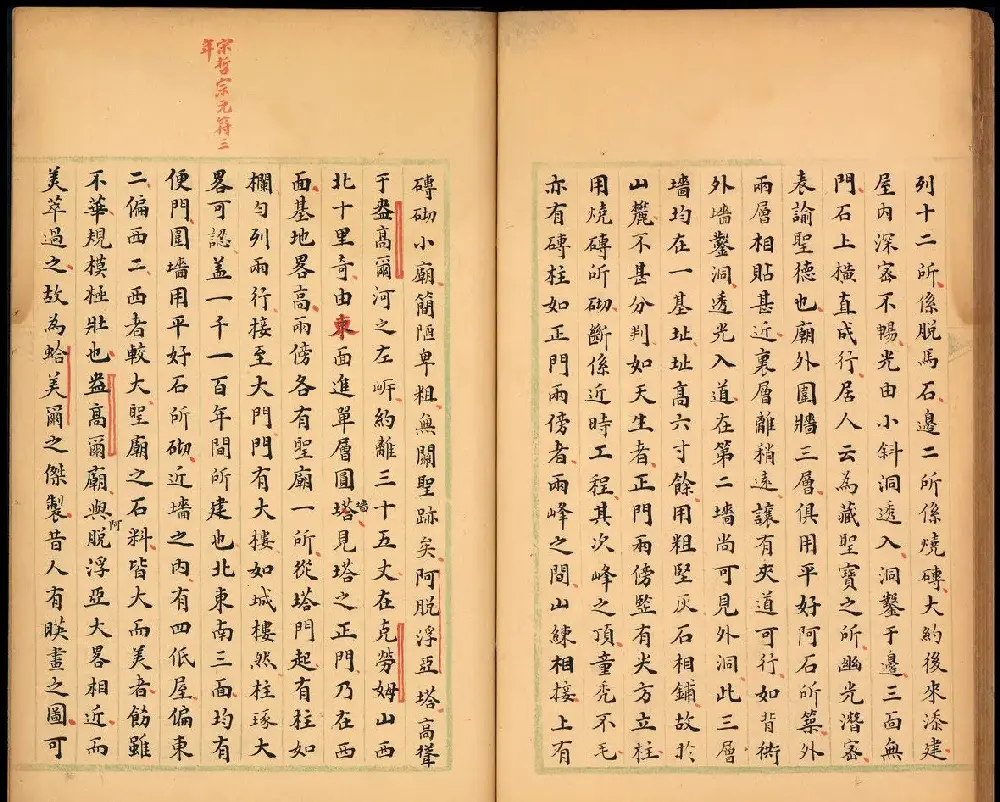 列十二所係脱馬石邊二所係燒磚大約後來添建
屋內深窓不暢光由小斜洞透入洞鑿于邊三面無
門石上橫直成行居人云為藏聖寶之所幽光潛窓
表諭聖德也廟外圍牆三層俱用平好阿石所築外
兩層相貼甚近裏層離稍遠讓有夾道可行如背術
外墻鑿洞透光入道在第二墻尚可見外洞此三層
墻均在一基址址高六寸餘用粗堅灰石相鋪故於
山麓不甚分判如天生者正門兩傍監有尖方立柱
用燒磚所砌斷係近時工程其次峰之頂童禿不毛
亦有磚柱如正門兩傍者兩峰之間山鍊相接上有
宗哲宗元符三
年
磚砌小廟簡陋卑粗無關聖跡矣阿脱浮亞塔高聳
于益高爾河之左岍約離三十五丈在克勞姆山西
北十里奇由東面進單層圓塔墻見塔之正門乃在西
面基地畧高兩傍各有聖廟一所從塔門起有柱如
欄勻列兩行接至大門門有大樓如城樓然柱琢大
畧可認蓋一千一百年間所建也北東南三面均有
便門圍墻用平好石所砌近墻之內有四低屋偏東
二偏西二西者較大聖廟之石料皆大而美者餝雖
不華規模極壯也益高爾廟與阿脱浮亞大畧相近而
美萃過之故為蛤美爾之傑製昔人有暎畫之圖可